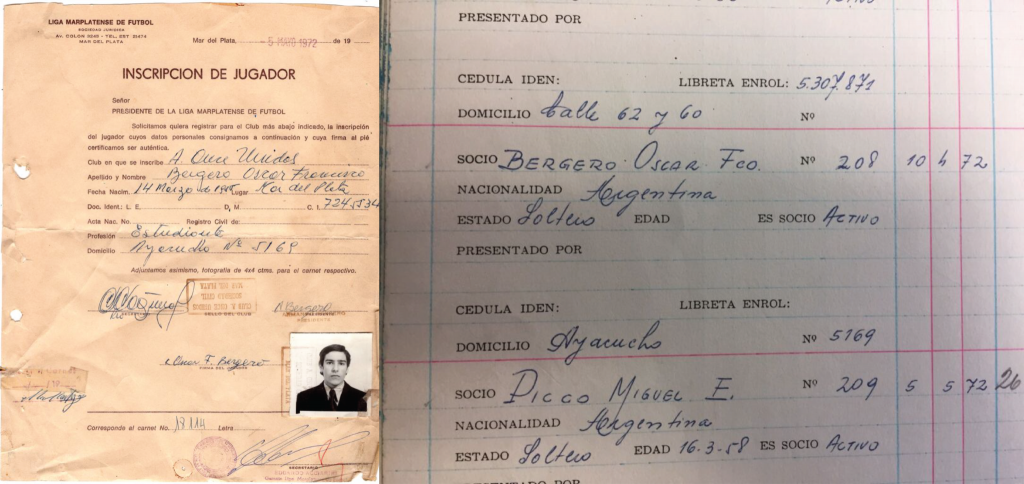 LIGA MARPLATENSE DE FUTBOL
SOCIEDAD JURIDICA
AV. COLON - TEL. EST 21474
MAR DEL PLATA
Mar del Plata, 5 MAYO 1972 de 19
INSCRIPCION DE JUGADOR
Señor
PRESIDENTE DE LA LIGA MARPLATENSE DE FUTBOL
Solicitamos quiera registrar para el Club más abajo indicado, la inscripción
del jugador cuyos datos personales consignamos a continuación y cuya firma al pié
certificamos ser auténtica.
Club en que se inscribe A. Once Unidos
Apellido y Nombre Bergero Oscar Francisco
Fecha Nacim. 14 Marzo de Lugar Mar del Plata
Doc. Ident.: L. E. D. M. C. I. 7245534
Acta Nac. No. Registro Civil de:
Profesión Estudiante
Domicilio Ayacucho Nº 5169
Adjuntamos asimismo, fotografía de 4x4 ctms. para el carnet respectivo.
CLUB A. ONCE UNIDOS
MAR DEL PLATA
SELLO DEL CLUB
Bergero
Oscar F. Bergero
Corresponde el carnet No. 18.114 Letra
SECRETARIO
PRESENTADO POR
CEDULA IDEN: LIBRETA ENROL: 5.307.871
DOMICILIO Calle 62 y 60 Nº
SOCIO BERGERO OSCAR FCO. Nº 208 10 4 72
NACIONALIDAD Argentina
ESTADO Soltero EDAD ES SOCIO ACTIVO
PRESENTADO POR
CEDULA IDEN: LIBRETA ENROL:
DOMICILIO Ayacucho Nº 5169
SOCIO DICCO MIGUEL E. Nº 209 5 5 72 26
NACIONALIDAD Argentina
ESTADO Soltero EDAD 16-3-58 ES SOCIO ACTIVO
PRESENTADO POR